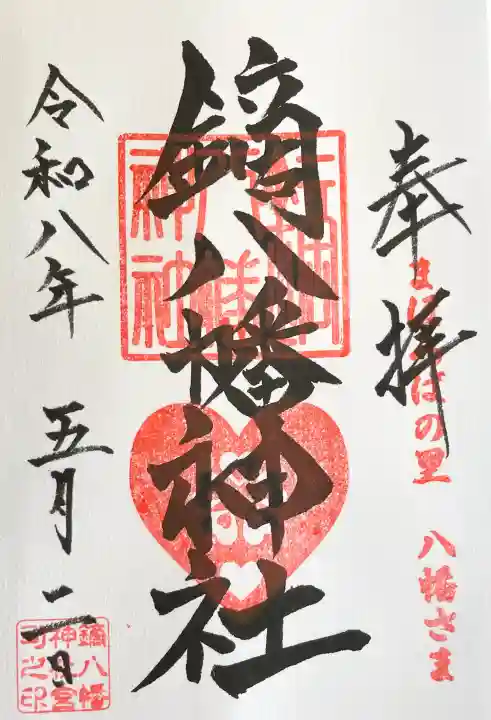 奉拝
まほろばの里 八幡さま
鏑八幡神社
令和八年 五月二日
鏑八幡
神社宮
司之印